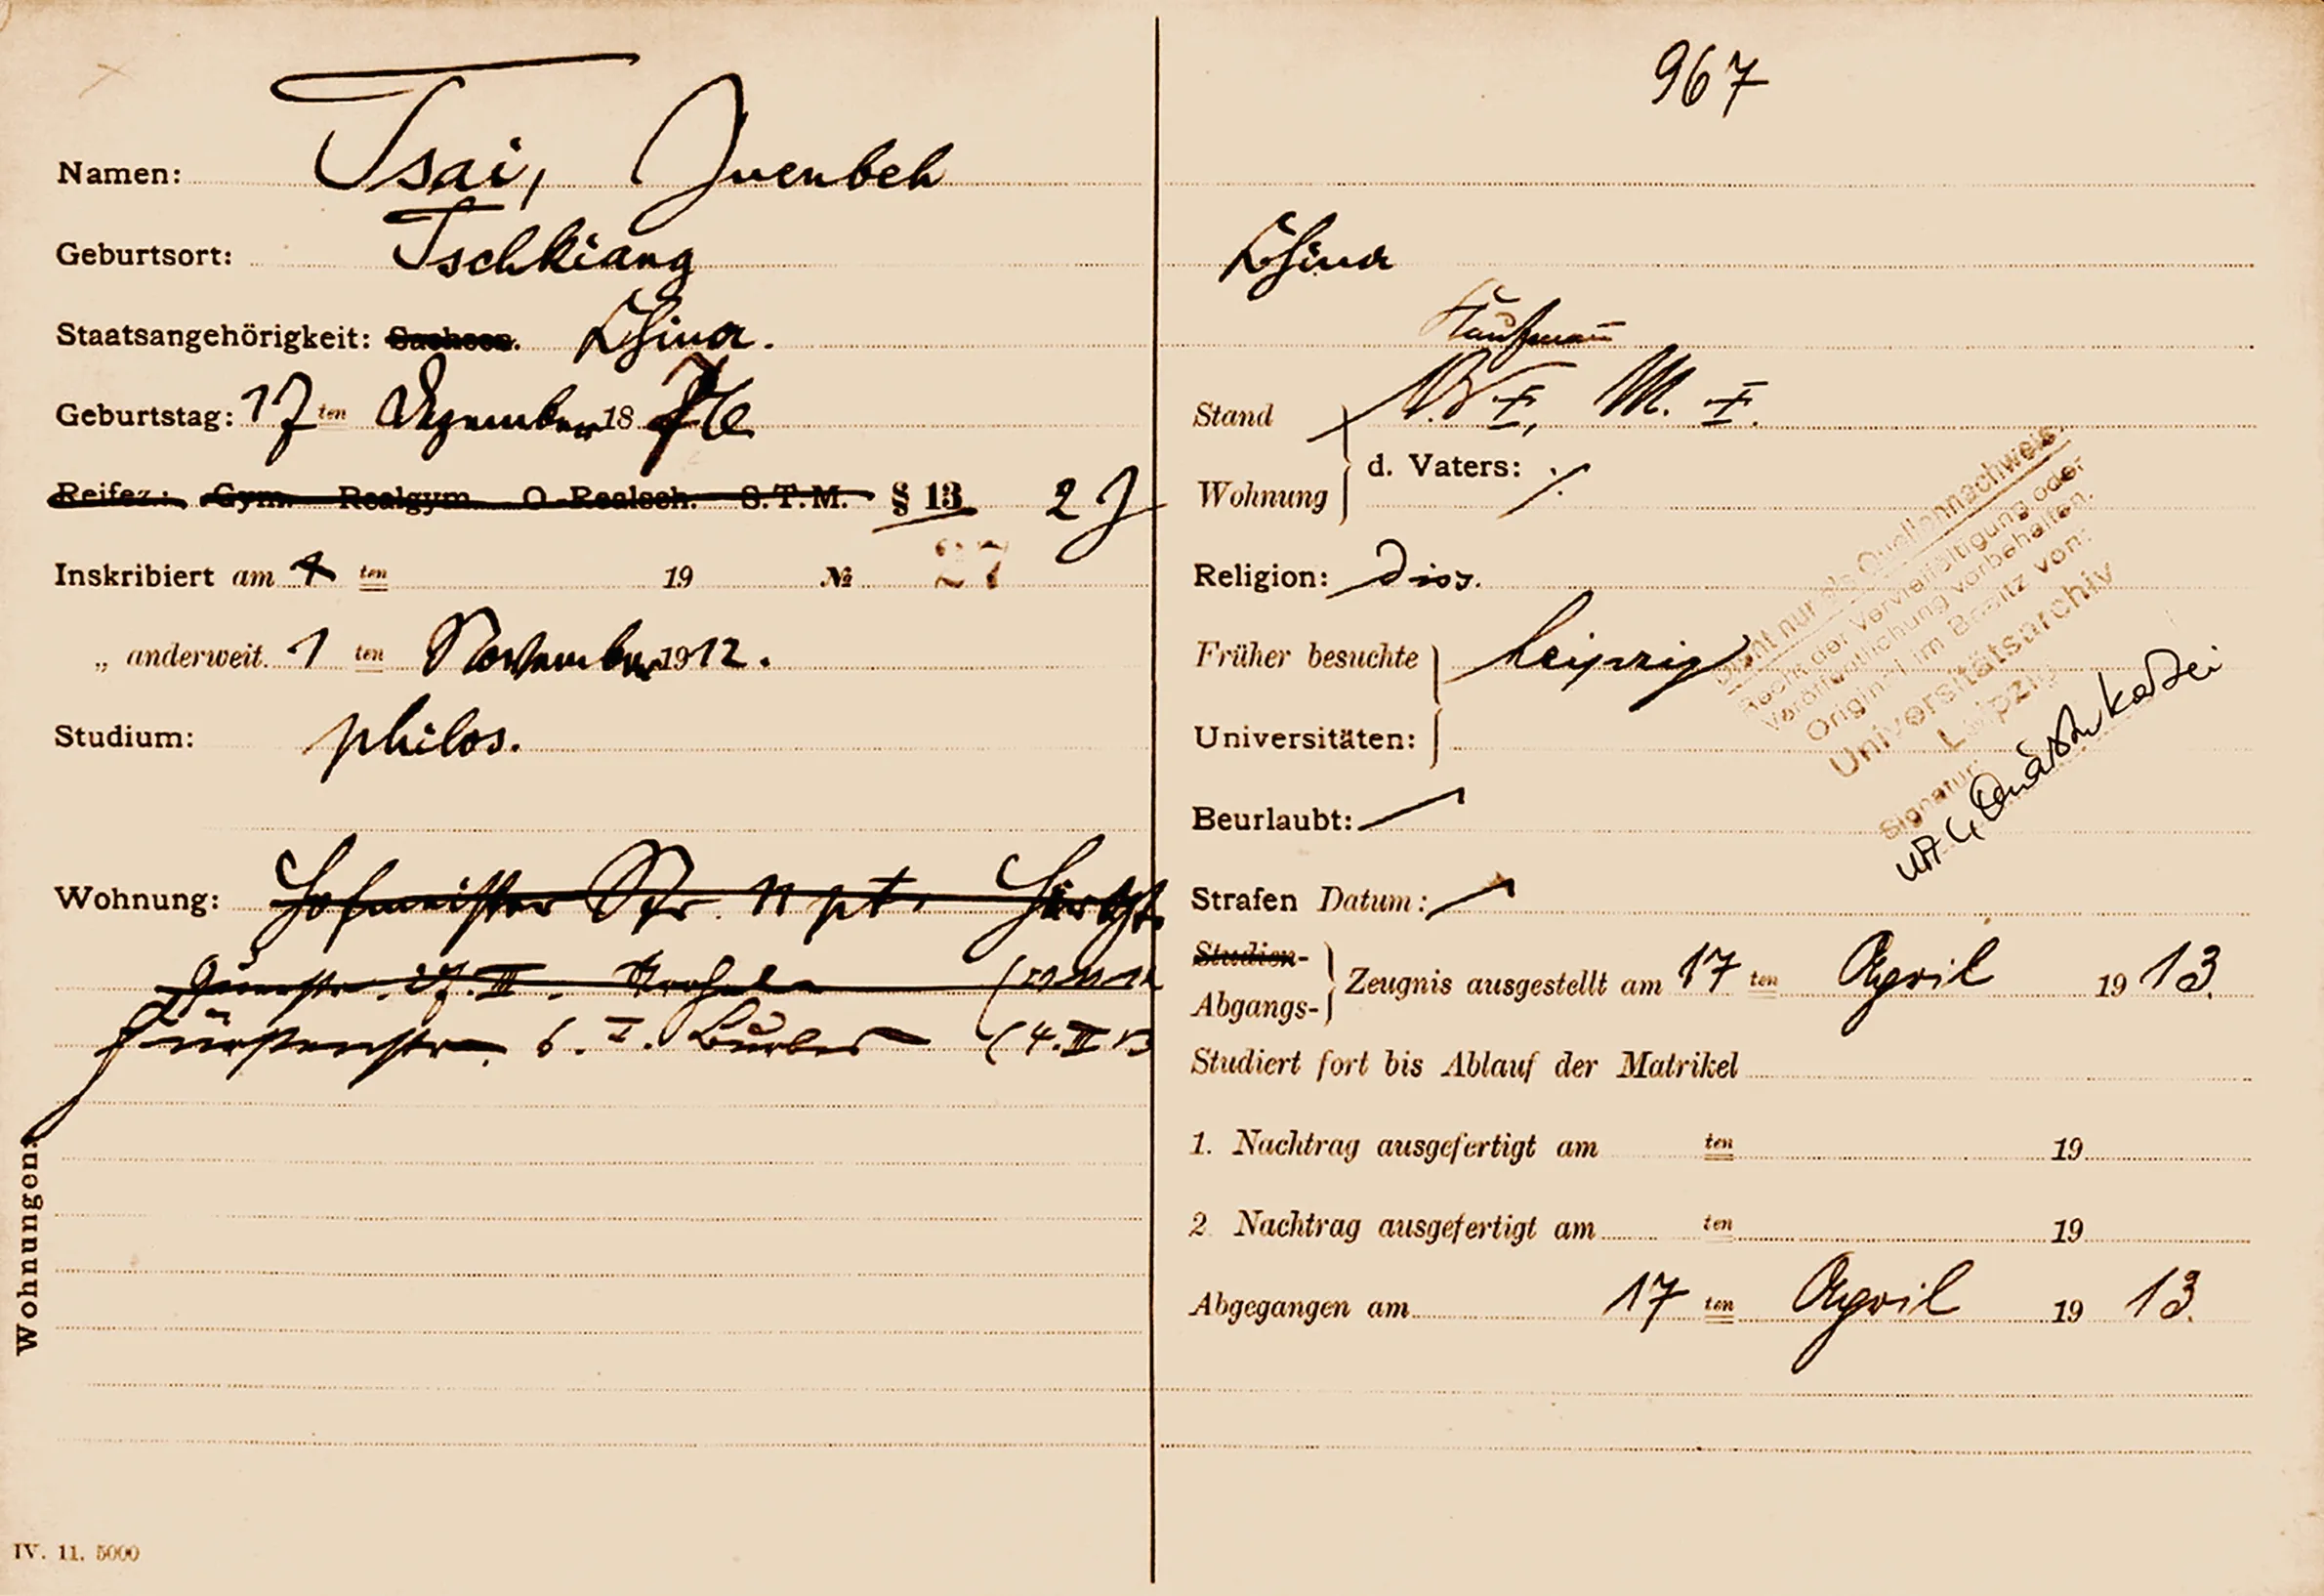 967
Namen: Tsai, Juenbeh
Geburtsort: Tschkiang China
Staatsangehörigkeit: Sachsen. China.
Kaufmann
Geburtstag: 17 ten Dezember 18 76
Stand
Wohnung d. Vaters: ./.
Reifez.: Gym. Realgym. O.-Realsch. S.T.M. § 13 2 J
Inskribiert am ten 19 № 27
„ anderweit. 1 ten November 1912.
Studium: philos.
Wohnung: Hofmeister Str. 11 pt.
27. III.
Fürstenstr. 6. I. (4. III 13
Wohnungen:
IV. 11. 5000
Religion: Diss.
Früher besuchte Leipzig
Universitäten:
Beurlaubt:
Strafen Datum:
Studien-
Abgangs- Zeugnis ausgestellt am 17 ten April 19 13.
Studiert fort bis Ablauf der Matrikel
1. Nachtrag ausgefertigt am ten 19
2 Nachtrag ausgefertigt am ten 19
Abgegangen am 17 ten April 19 13.
Dient nur als Quellennachweis.
Recht der Vervielfältigung oder
Veröffentlichung vorbehalten.
Original im Besitz von:
Universitätsarchiv
Leipzig
Signatur:
UAL, Quästurkartei